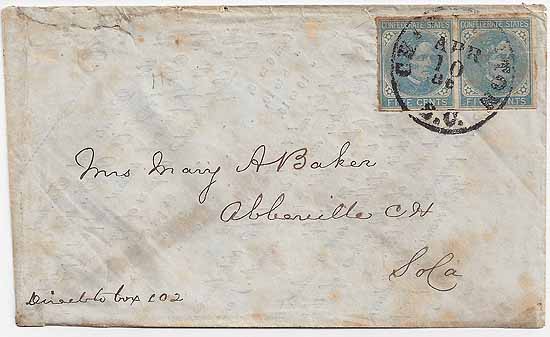 CONFEDERATE STATES CONFEDERATE STATES
APR
10
S.C.
FIVE CENTS FIVE CENTS
Mrs Mary A Baker
Abbeville CH
So Ca
Direct to box 102